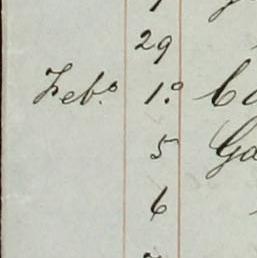 29
Feb.º 1.º
5 Ga
6